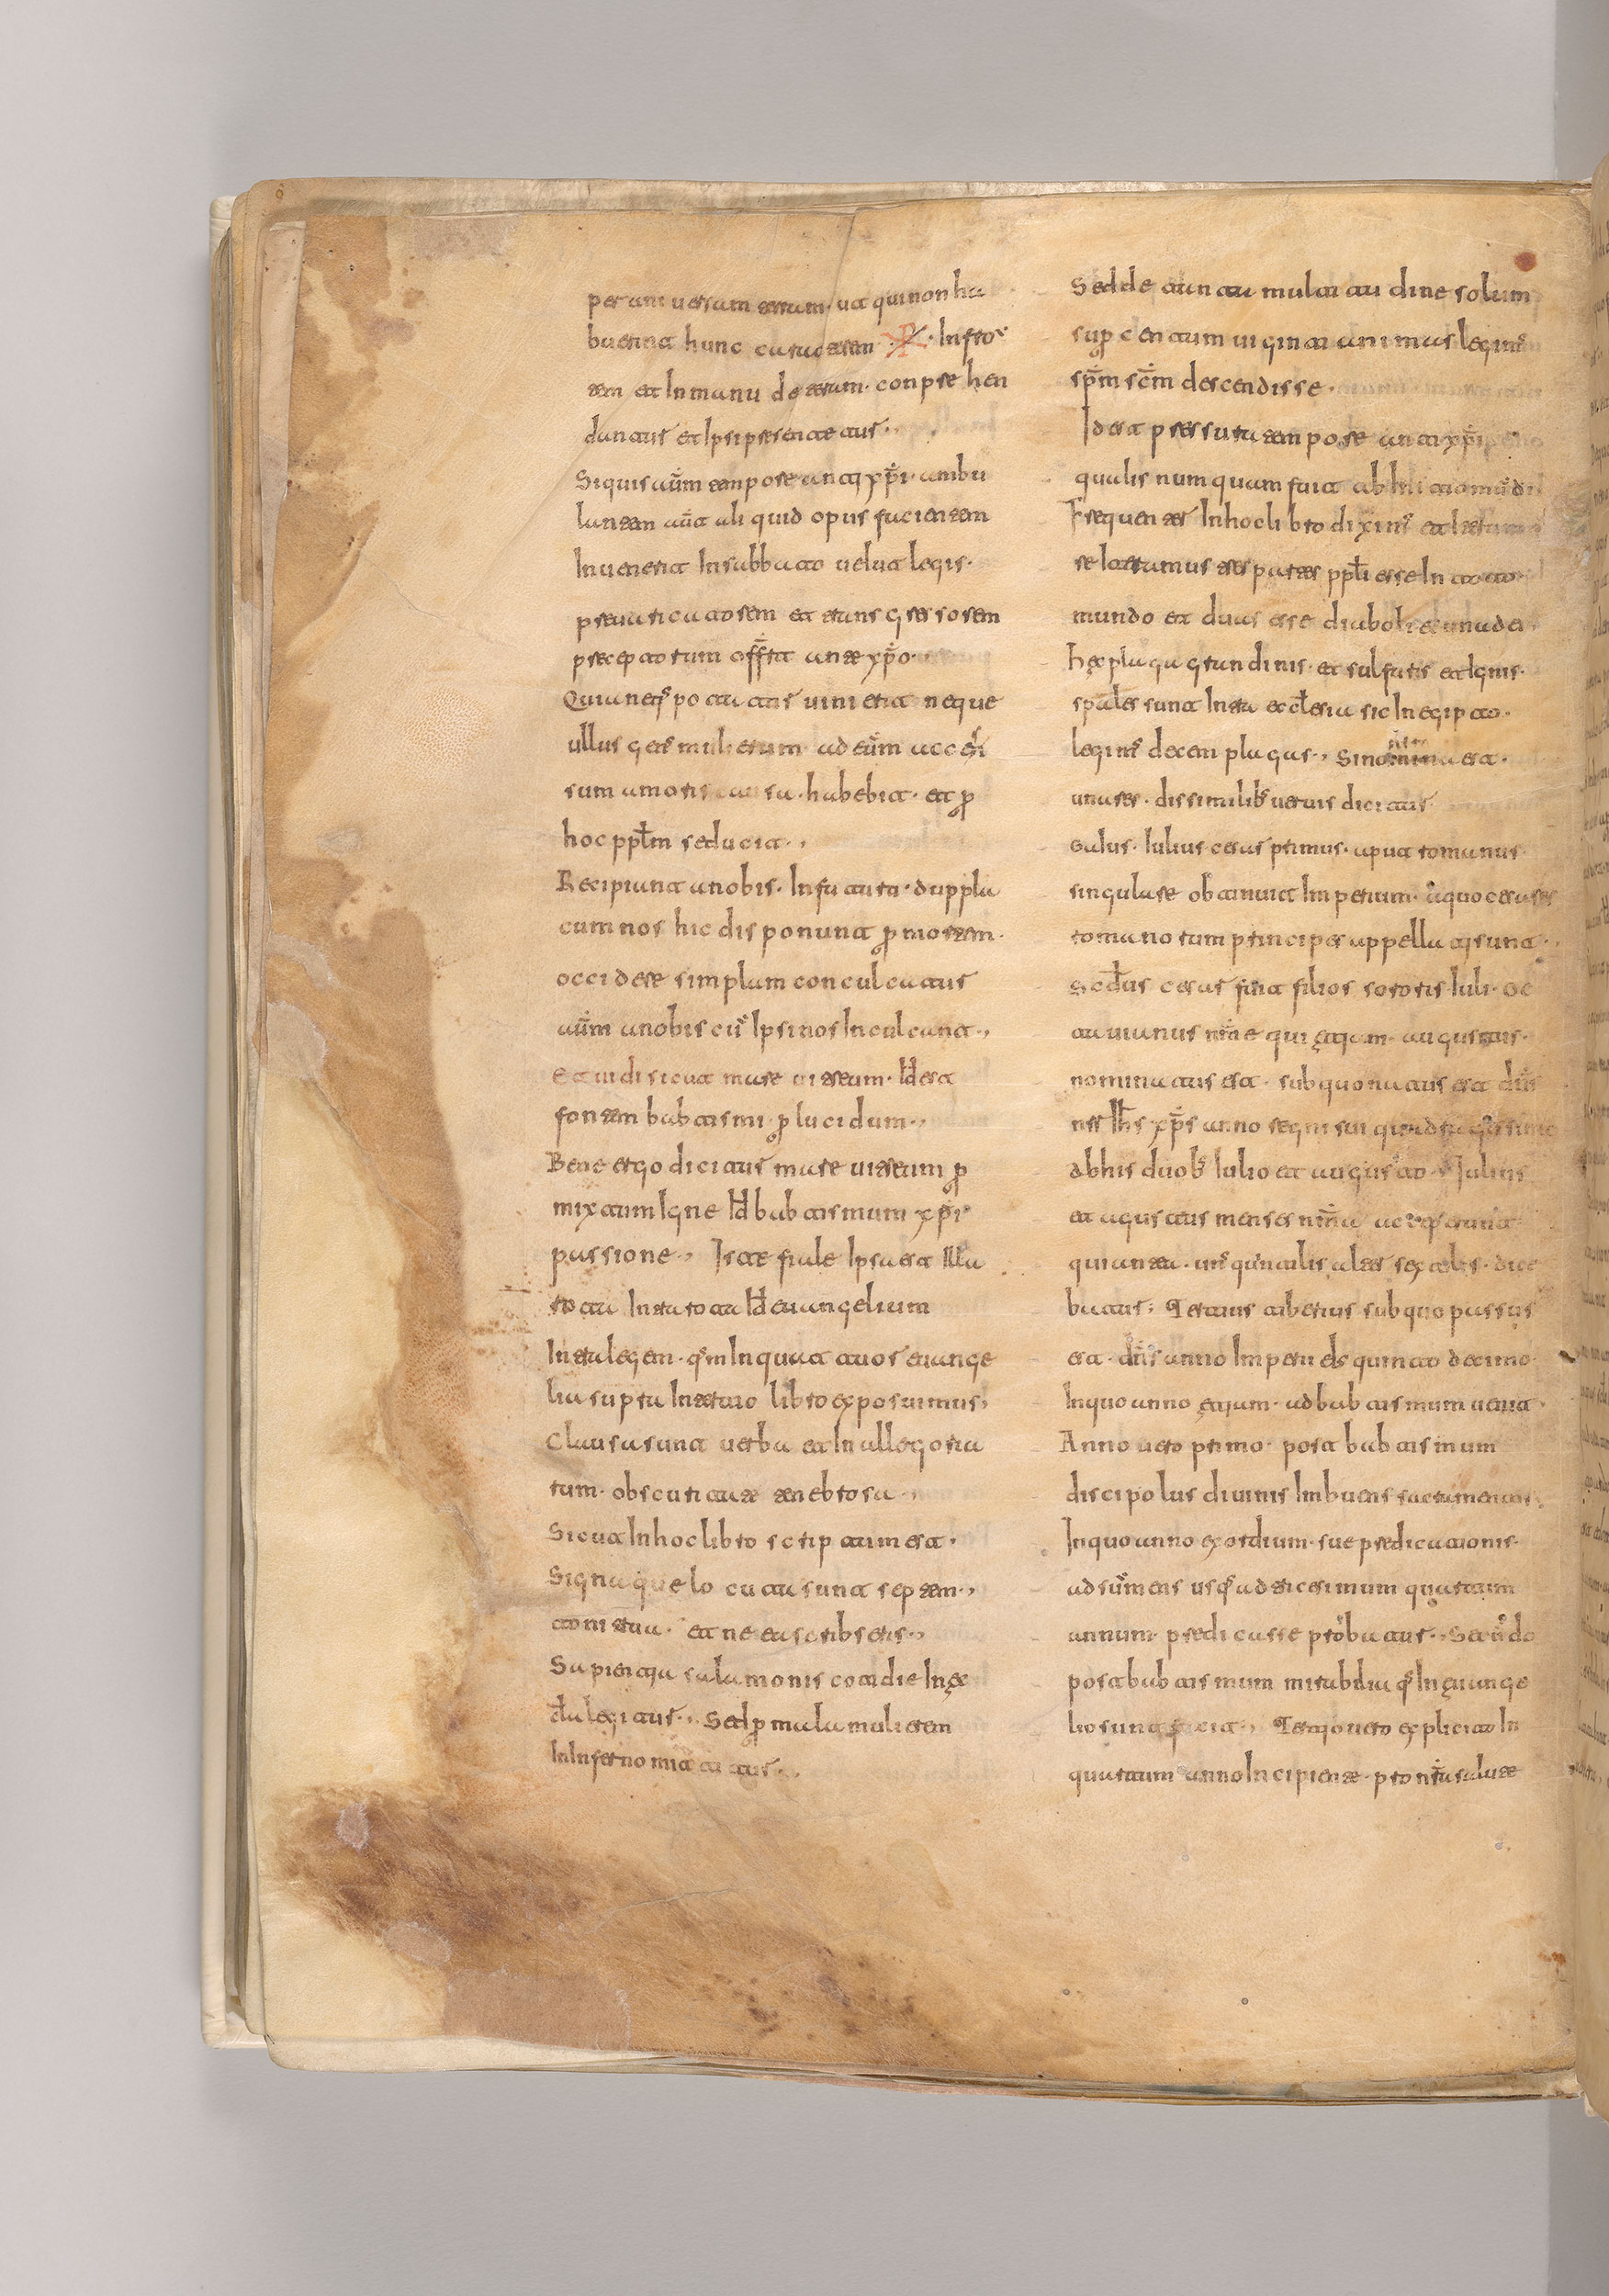 per uniuersam terram · ut qui non ha
buerint hunc caracterem ☧ · Infro
tem et Inmanu dexteram · conprehen
dantur et Ipsi presentetur ·,
Si quis aūm tempore antixp̄i · ambu
lantem aut aliquid opus facientem
Inuenerit Insabbato uelut legis ·
preuaricatorem et transgressorem
preceptorum offert ante xp̄o ·,
Quia neq potatus uini erit neque
ullus gens mulierum ad eūm accessi
sum amoris causa · habebit · et p
hoc pplm seducit ·,
Recipiunt a nobis · Infutura · dupplu
cum nos hic disponunt p mortem ·
occidere simplum conculcatur
aūm a nobis cū Ipsi nos Inculcant ·,
et uidi sicut mare uitreum · Id est
fontem babtismi · plucidum ·,
Bene ergo dicitur mare uitreum p
mixtum Igne Id babtismum xp̄i
passione ·, Iste fiale Ipsa est Illa
rota Intra rota Id euangelium
Intra legem · qm Inquit attuor euange
lia supra Intertio libro exposuimus ·,
Clausa sunt uerba et In allegoria
rum · obscuritate tenebrosa ·,
Sicut Inhoc libro scriptum est ·
Signa que locuta sunt septem ·,
tonitrua · et ne ea scribseris ·,
Sapientia salamonis cotidie Inec
cla legitur ·, Sed p mala mulierem
In Inferno mittatur ·,
Sed de tanta multitudine solum
sup centum uiginti animas legims
spm scm descendisse ·
Id est pressura tempore antixp̄i
qualis numquam fuit ab Initio mūdi
Frequenter Inhoc libro diximus
mundo et duas esse diaboli et una dei ·
hec plaga grandinis · et sulfuris et Ignis ·
spales sunt Intra ecclesia sic In egipto ·
legims decem plagas ·, Sinonima est ·
una res · dissimilibs uerbis dicitur
Galus · Iulius cesar primus · aput romanus ·
singulare obtinuit Imperium · a quo cesares
romanorum principes appellati sunt ·,
Scdus cesar fuit filios sororis Iuli · oc
tauianus nme qui etiam · augustus ·
nominatus est · sub quo natus est dns
nsr Ihs xps anno regni sui quadragesimo
ab his duobs Iulio et augusto · Iulius
et agustus menses
quia antea · uns quintilis alter sextilis · dice
batur · Tertius tiberius sub quo passus
est · dns anno Imperii eis quinto decimo ·
Inquo anno etiam · ad babtismum uenit ·
Anno uero primo · post babtismum
discipolus diuinis Imbuens sacramentis ·
Inquo anno exordium · sue predicationis ·
ad sūmens usq ad tricesimum quartum
annum · predicasse probatur ·, Secūdo
post babtismum mirabilia q In euange
lio sunt facit ·, Tertio uero explicito In
quartum anno Incipiente · pro nra salute